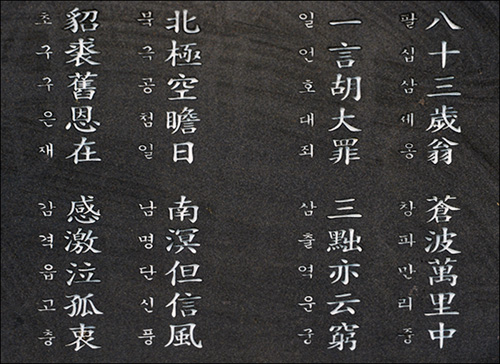 八十三歲翁
팔십삼세옹
蒼波萬里中
창파만리중
一言胡大罪
일언호대죄
三黜亦云窮
삼출역운궁
北極空瞻日
북극공첨일
南溟但信風
남명단신풍
貂裘舊恩在
초구구은재
感激泣孤衷
감격읍고충